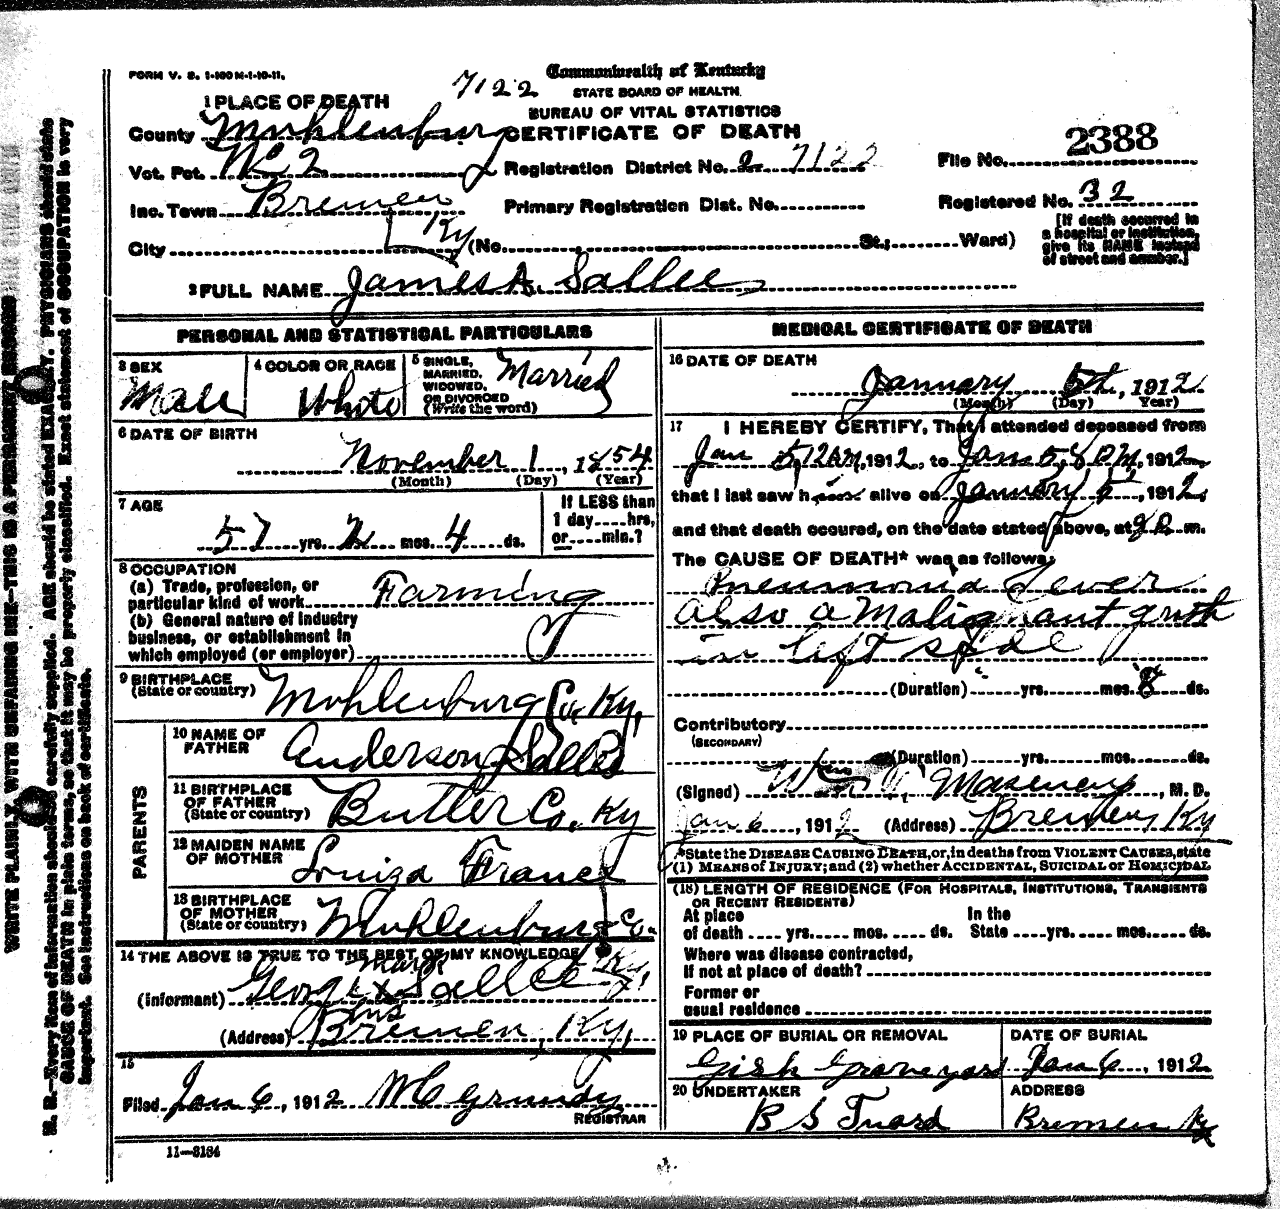 FORM V. S. 1-100 M-1-10-11.
7122
Commonwealth of Kentucky
STATE BOARD OF HEALTH.
BUREAU OF VITAL STATISTICS
CERTIFICATE OF DEATH
1 PLACE OF DEATH
County Muhlenburg
Vot. Pct. No 2
Registration District No. 2 7122
File No. 2388
Inc. Town Bremen
Primary Registration Dist. No.
Registered No. 32
City Ky (No. St.; Ward)
[If death occurred in a hospital or institution, give its NAME instead of street and number.]
2 FULL NAME James A. Sallee
PERSONAL AND STATISTICAL PARTICULARS
3 SEX
Male
4 COLOR OR RACE
White
5 SINGLE, MARRIED, WIDOWED, OR DIVORCED (Write the word)
Married
6 DATE OF BIRTH
November 1, 1854
(Month) (Day) (Year)
7 AGE
57 yrs. 2 mos. 4 ds.
If LESS than 1 day....hrs, or....min.?
8 OCCUPATION
(a) Trade, profession, or particular kind of work Farming
(b) General nature of industry business, or establishment in which employed (or employer)
9 BIRTHPLACE (State or country) Muhlenburg Co., Ky,
PARENTS
10 NAME OF FATHER Anderson Sallee
11 BIRTHPLACE OF FATHER (State or country) Butler Co., Ky
12 MAIDEN NAME OF MOTHER Louiza France
13 BIRTHPLACE OF MOTHER (State or country) Muhlenburg Co. Ky,
14 THE ABOVE IS TRUE TO THE BEST OF MY KNOWLEDGE
mark
(Informant) George x Sallee
his
(Address) Bremen, Ky,
15
Filed Jan 6, 1912 W C Grundy
REGISTRAR
11-3184
MEDICAL CERTIFICATE OF DEATH
16 DATE OF DEATH
January 5th, 1912
(Month) (Day) (Year)
17 I HEREBY CERTIFY, That I attended deceased from
Jan 5, 12 AM, 1912, to Jan 5, 8 PM, 1912
that I last saw him alive on January 5, 1912,
and that death occured, on the date stated above, at P. m.
The CAUSE OF DEATH* was as follows:
Pneumonia Fever
also a Malignant groth
in left side
(Duration) yrs. mos. 8 ds.
Contributory
(SECONDARY)
(Duration) yrs. mos. ds.
(Signed) Wm, M. D.
Jan 6, 1912 (Address) Bremen, Ky
*State the DISEASE CAUSING DEATH, or, in deaths from VIOLENT CAUSES, state
(1) MEANS OF INJURY; and (2) whether ACCIDENTAL, SUICIDAL or HOMICIDAL.
(18) LENGTH OF RESIDENCE (FOR HOSPITALS, INSTITUTIONS, TRANSIENTS OR RECENT RESIDENTS)
At place of death .... yrs. .... mos. .... ds. In the State .... yrs. .... mos. .... ds.
Where was disease contracted,
If not at place of death?
Former or
usual residence
19 PLACE OF BURIAL OR REMOVAL
Gish Graveyard
DATE OF BURIAL
Jan 6, 1912
20 UNDERTAKER
B S
ADDRESS
Bremen Ky
WRITE PLAINLY, WITH UNFADING INK—THIS IS A PERMANENT RECORD
N. B.—Every item of information should be carefully supplied. AGE should be stated EXACTLY. PHYSICIANS should state
CAUSE OF DEATH in plain terms, so that it may be properly classified. Exact statement of OCCUPATION is very
important. See instructions on back of certificate.